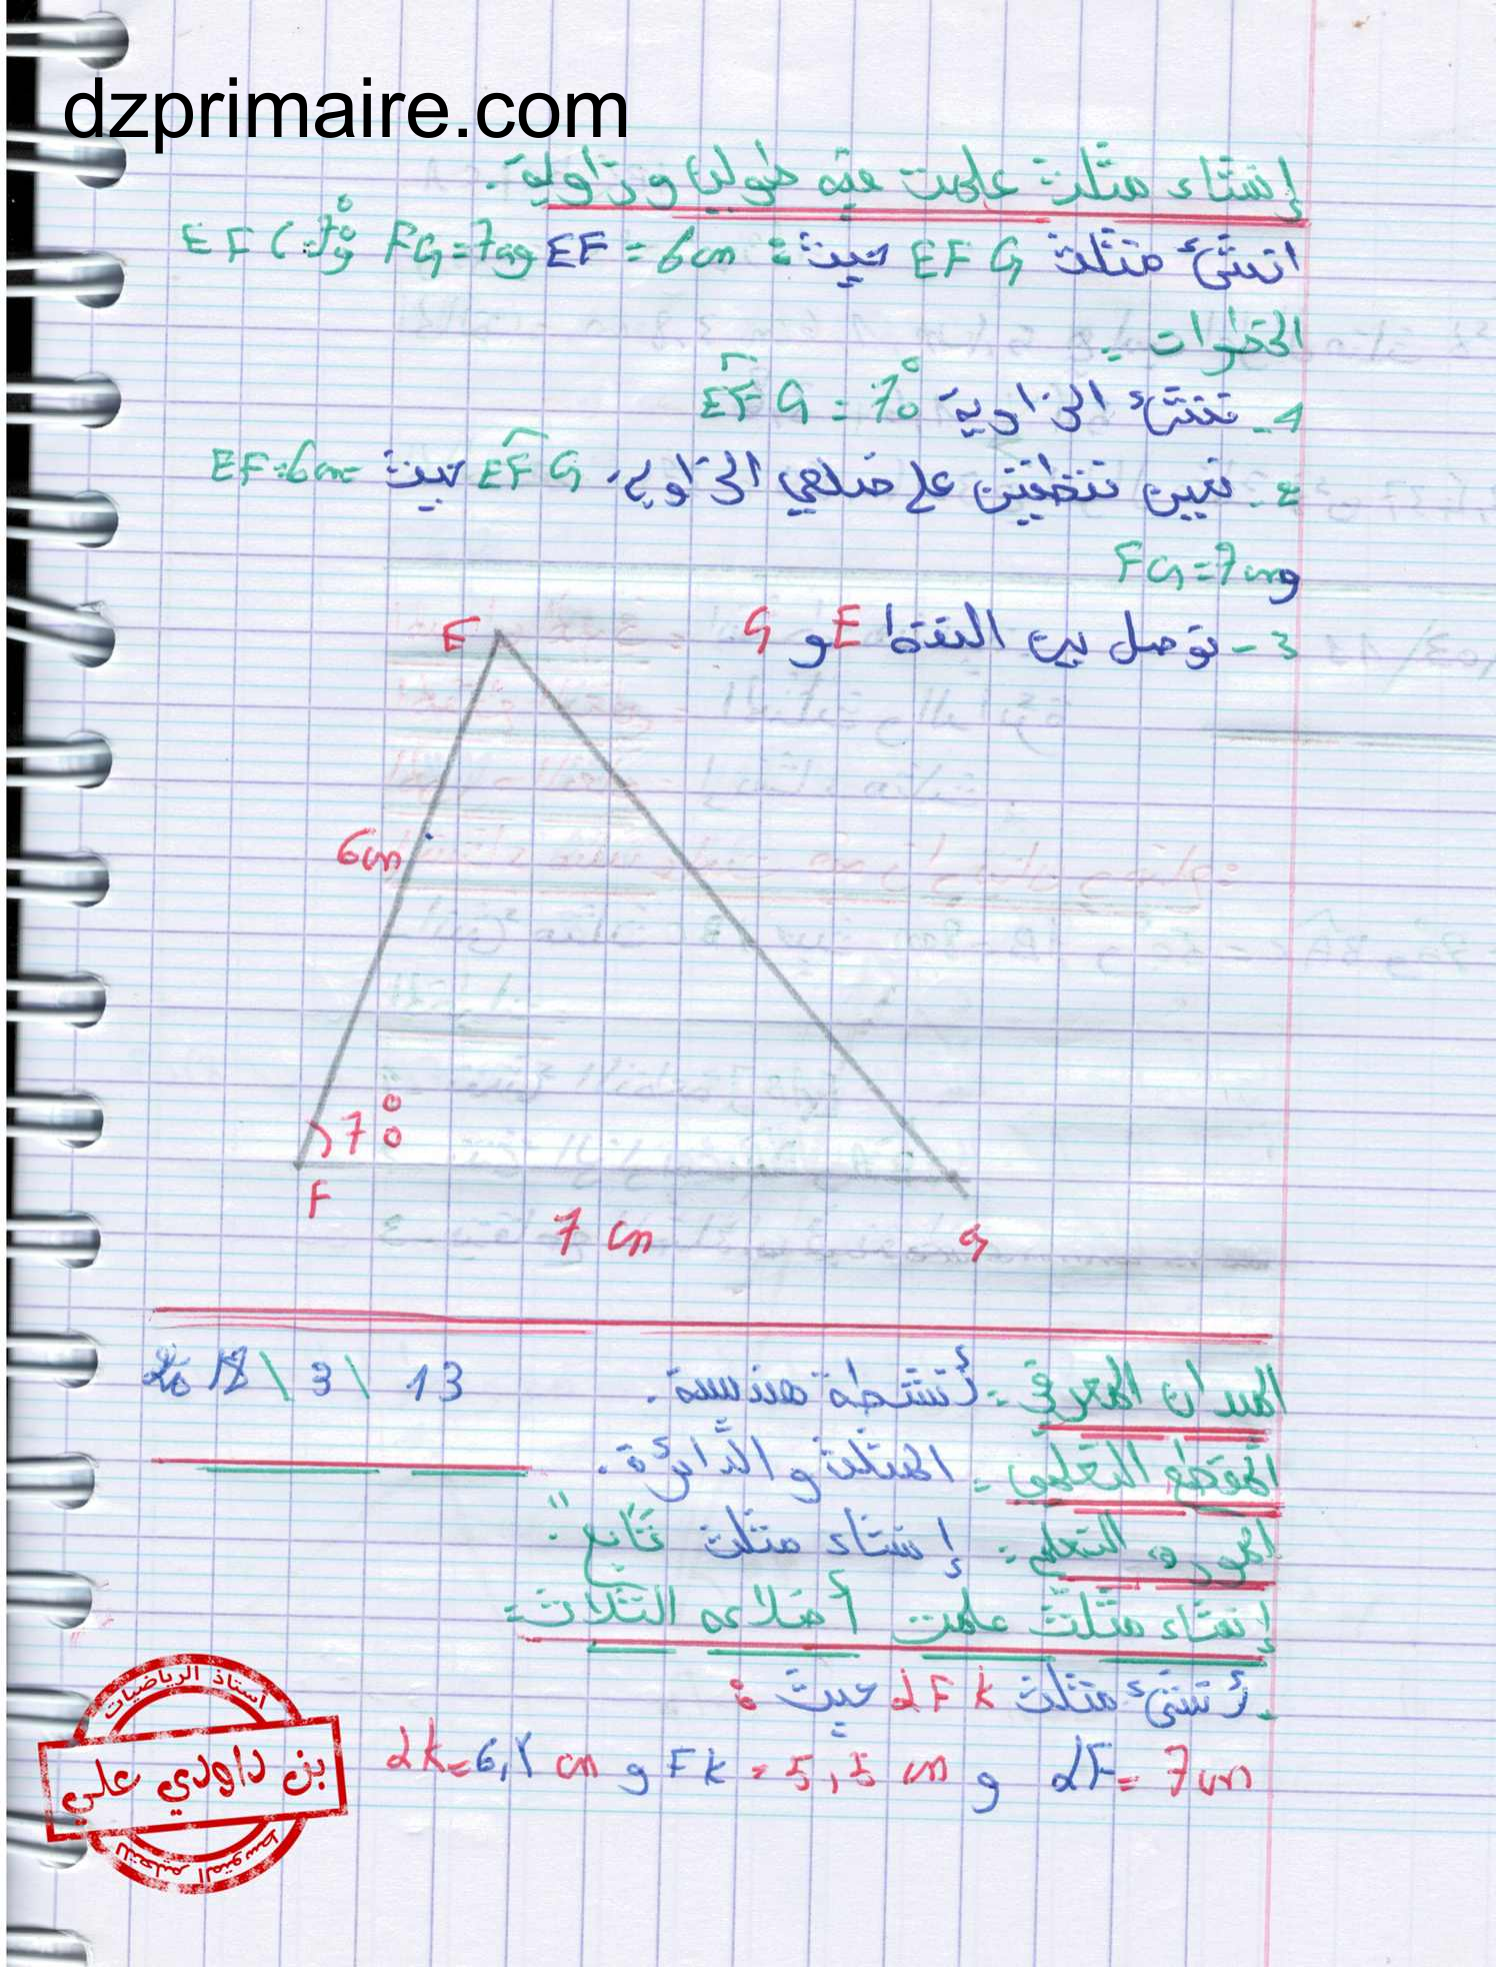 dzprimaire.com
إنشاء مثلث علمت فيه طولين وزاوية.
انشئ مثلث EFG حيث: EF = 6cm و FG=7cm و EFG=70°
الخطوات -
1- ننشئ الزاوية EFG = 70°
2- نعين نقطتين على ضلعي الزاوية EFG حيث EF=6cm
و FG=7cm
3- نوصل بين النقط E و G
E
6cm
70°
F
7 cm
G
الميدان المعرفي :- أنشطة هندسية. 13 \ 3 \ 2018
المقطع التعلمي - المثلث والدائرة.
المورد التعلمي: إنشاء مثلث "تابع":
إنشاء مثلث علمت أضلاعه الثلاث:
- أنشئ مثلث LFK حيث:
LF = 7cm و FK = 5,5 cm و LK=6,2 cm
أستاذ الرياضيات
بن داودي علي
للتعليم المتوسط